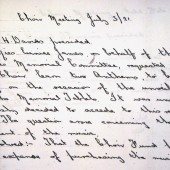 Choir Meeting July 3/21.
H. Davis presided
James Jones on behalf of th
Memorial Committee, requested
Choir learn two Anthems to b
on the occasion of the unveil
Memorial Tablet. It was una
decided to accede to this re
The question arose concerning the
of the music
That the Choir Fund
expense of purchasing the mus